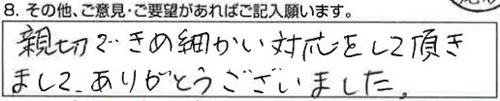 8. その他、ご意見・ご要望があればご記入願います。
親切できめ細かい対応をして頂き
まして、ありがとうございました。